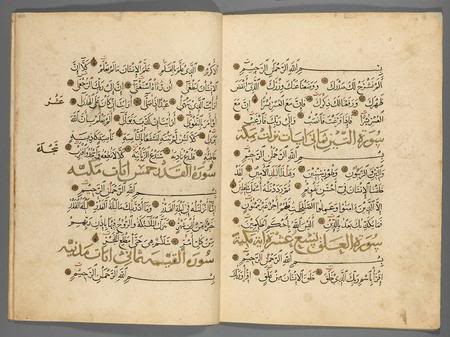 بسم الله الرحمن الرحيم
ألم نشرح لك صدرك ووضعنا عنك وزرك الذي أنقض
ظهرك ورفعنا لك ذكرك فإن مع العسر يسرا إن مع
العسر يسرا فإذا فرغت فانصب وإلى ربك فارغب
سورة التين ثماني آيات نزلت بمكة
بسم الله الرحمن الرحيم
والتين والزيتون وطور سينين وهذا البلد الأمين لقد
خلقنا الإنسان في أحسن تقويم ثم رددناه أسفل سافلين
إلا الذين آمنوا وعملوا الصالحات فلهم أجر غير ممنون
فما يكذبك بعد بالدين أليس الله بأحكم الحاكمين
سورة العلق تسع عشرة آية مكية
بسم الله الرحمن الرحيم
اقرأ باسم ربك الذي خلق خلق الإنسان من علق اقرأ وربك
الأكرم الذي علم بالقلم علم الإنسان ما لم يعلم كلا إن
الإنسان ليطغى أن رآه استغنى إن إلى ربك الرجعى
أرأيت الذي ينهى عبدا إذا صلى أرأيت إن كان على الهدى
عشر
أو أمر بالتقوى أرأيت إن كذب وتولى ألم يعلم بأن الله
يرى كلا لئن لم ينته لنسفعا بالناصية ناصية كاذبة
خاطئة فليدع ناديه سندع الزبانية كلا لا تطعه واسجد واقترب
سجدة
سورة القدر خمس آيات مكية
بسم الله الرحمن الرحيم
إنا أنزلناه في ليلة القدر وما أدراك ما ليلة القدر ليلة القدر
خير من ألف شهر تنزل الملائكة والروح فيها بإذن ربهم
من كل أمر سلام هي حتى مطلع الفجر
سورة القيمة ثماني آيات مدنية
بسم الله الرحمن الرحيم